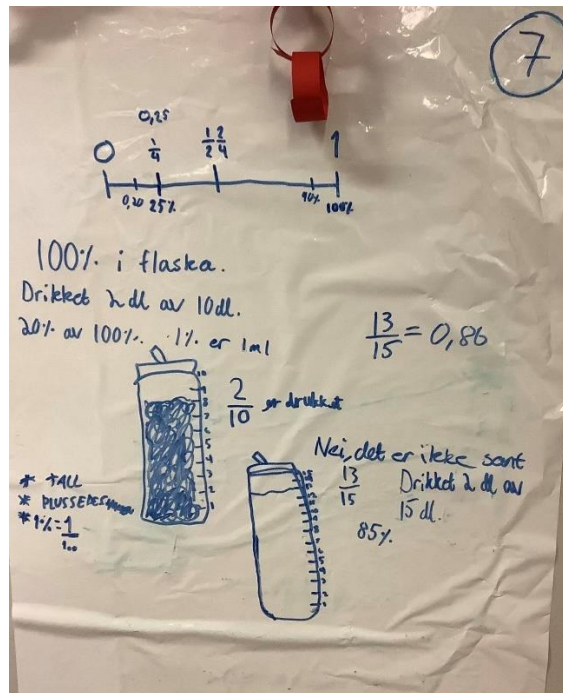 7
0,25
0 1/4 1/2 2/4 1
0,20 25% 90% 100%
100% i flaska.
Drikket 2 dl av 10dl.
20% av 100%. 1% er 1ml
13/15 = 0,86
10
9
8
7
6
5
4
3
2
1
2/10 er drukket
Nei, det er ikke sant
13/15 Drikket 2 dl av
15 dl.
85%
* TALL
*
* 1% = 1/100